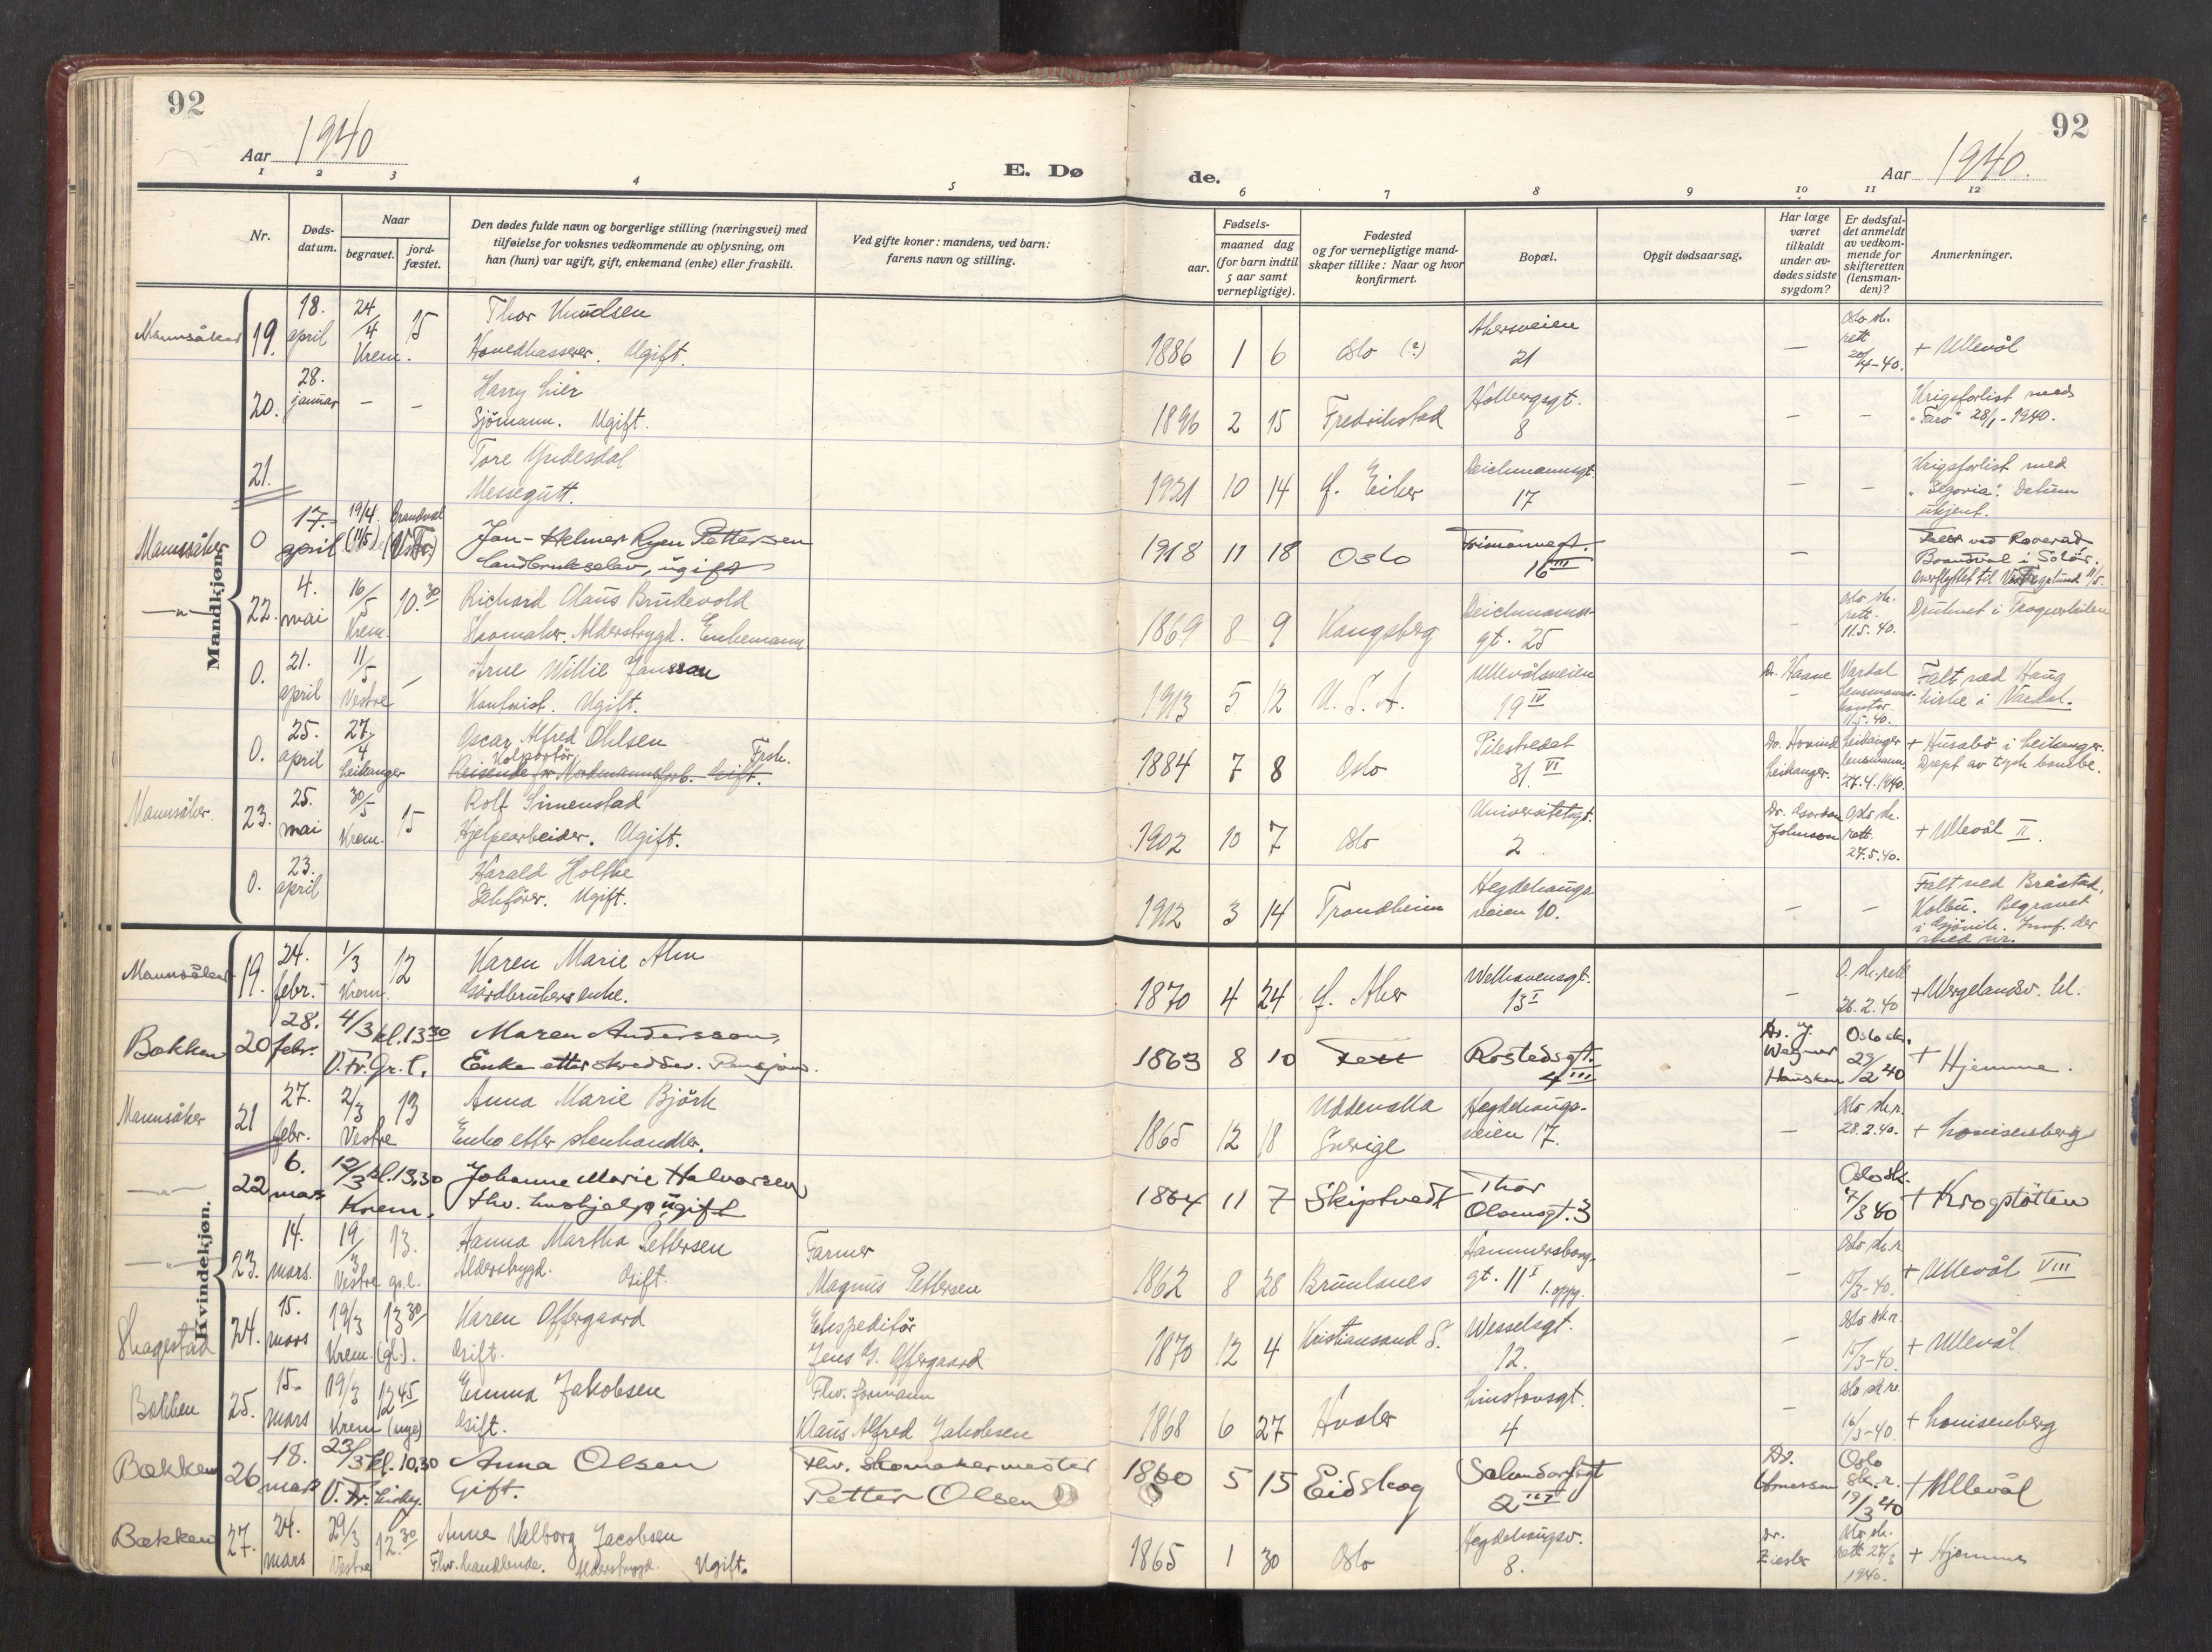 92
92
Aar 1940
E. Dø
de.
Aar 1940.
1 2 3 4 5 6 7 8 9 10 11 12
Nr.
Døds-
datum.
Naar
begravet.
jord-
fæstet.
Den dødes fulde navn og borgerlige stilling (næringsvei) med
tilføielse for voksnes vedkommende av oplysning, om
han (hun) var ugift, gift, enkemand (enke) eller fraskilt.
Ved gifte koner: mandens, ved barn:
farens navn og stilling.
Fødsels-
aar.
maaned dag
(for barn indtil
5 aar samt
vernepligtige).
Fødested
og for vernepligtige mand-
skaper tillike: Naar og hvor
konfirmert.
Bopæl.
Opgit dødsaarsag.
Har læge
været
tilkaldt
under av-
dødes sidste
sygdom?
Er dødsfal-
det anmeldt
av vedkom-
mende for
skifteretten
(lensman-
den)?
Anmerkninger.
Mandkjøn.
Mannsåker 19. 18. april 24/4 Krem. 15
Thor Knudsen
Hovedkasserer. Ugift.
1886 1 6 Oslo (?) Akersveien 21 — Oslo sk. rett 20/4-40. + Ullevål
20. 28. januar — —
Harry Lier
Sjömann. Ugift.
1896 2 15 Fredrikstad Holbergsgt. 8 — — Krigsforlist med
"Faro" 28/1-1940.
21.
Tore Yndesdal
Messegutt.
1921 10 14 f. Eiker Deichmannsgt. 17 — — Krigsforlist med
"Segovia". Datum
ukjent.
Mannsåker 0 17. april 19/4 (11/5) Brandval (Vestre)
Jan-Helmer Ryen Pettersen
Landbrukselev, ugift
1918 11 18 Oslo Frimannsgt. 16 III — Falt ved Roverud
Brandval i Solör.
Overflyttet til Vestre gravlund 11/5.
—"— 22. 4. mai 16/5 Krem. 10.30
Richard Olaus Brudevold
Skomaker. Alderstrygd. Enkemann
1869 8 9 Kongsberg Deichmanns-
gt. 25 — Oslo sk. rett. 11.5.40. Druknet i Frognerkilen
0. 21. april 11/5 Vestre —
Arne Willie Jansson
Kontorist. Ugift.
1913 5 12 U.S.A. Ullevålsveien 19 IV Dr. Haave — Vardal lensmanns-
kontor 11.5.40. Falt ved Haug
kirke i Vardal.
0. 25. april 27/4 Leikanger
Oscar Alfred Ohlsen
Kolportör Frsk.
Reisende for Nordmannsforb. Gift.
1884 7 8 Oslo Pilestredet 31 VI Dr. Hovind Leikanger. Leikanger lensmann. 27.4.1940. + Husabö i Leikanger.
Drept av tysk bombe.
Mannsåker. 23. 25. mai 30/5 Krem. 15
Rolf Simenstad
Hjelpearbeider. Ugift.
1902 10 7 Oslo Universitetsgt. 2 Dr. Johnson Oslo sk. rett. 27.5.40. + Ullevål II.
0. 23. april
Harald Holthe
Sakförer. Ugift.
1912 3 14 Trondheim Hegdehaugs-
veien 10. — — Falt ved Bråstad,
Kolbu. Begravet
i Gjövik. Innf. der
med nr.
Kvindekjøn.
Mannsåker 19. 24. febr. 1/3 Krem. 12
Karen Marie Alm
Gårdbrukers enke.
1870 4 24 f. Aker Welhavensgt. 13 I — O. sk.rett 26.2.40 + Wergelandsv. kl.
Bakken 20 28. febr. 4/3 V. Fr. Gr. l. kl. 13.30
Maren Anderssen,
Enke etter skredder. Pensjon.
1863 8 10 Fett Rostedsgt. 4 III Dr. J. Wegner Hausken Oslo sk. 29/2 40 + Hjemme.
Mannsåker 21 27. febr. 2/3 Vestre 13
Anna Marie Björk
Enke etter stenhandler.
1865 12 18 Uddevalla
Sverige Hegdehaugs-
veien 17. — Oslo sk.r. 28.2.40. + Lovisenberg
—"— 22 6. mars 12/3 Krem. kl. 13.30
Johanne Marie Halvorsen
fhv. hushjelp, ugift
1864 11 7 Skiptvedt Thor
Olsensgt. 3 Oslo sk. 7/3 40 + Krogstötten
—"— 23. 14. mars. 19/3 Vestre gr.l. 13.
Hanna Martha Pettersen
Alderstrygd. Gift.
Farmer
Magnus Pettersen
1862 8 28 Brunlanes Hammersborg-
gt. 11 I 1. oppg. — Oslo sk.r. 15/3-40. + Ullevål VIII
Skagestad 24. 15. mars 19/3 Krem. (gl.). 13 30
Karen Offergaard
Gift.
Ekspeditör
Jens G. Offergaard
1870 12 4 Kristiansand S. Wesselsgt. 12. — Oslo sk.r. 15/3-40. + Ullevål
Bakken 25. 15. mars 19/3 Krem (nye) 12 45
Emma Jakobsen
Gift.
Fhv. formann
Claus Alfred Jakobsen
1868 6 27 Hvaler Linstowsgt. 4 — Oslo sk.re. 16/3-40. + Lovisenberg
Bakken 26 18. mars 23/3 V. Fr. kirkeg. kl. 10.30
Anna Olsen
Gift.
Fhv. Skomakermester
Petter Olsen
1860 5 15 Eidskog 2 III Dr. Oslo sk.r. 19/3 40 + Ullevål
Bakken 27. 24. mars 29/3 Vestre 12.30
Anne Valborg Jacobsen
Fhv. handlende. Alderstrygd. Ugift.
1865 1 30 Oslo Hegdehaugsv. 8. Dr. Ziesler Oslo sk. rett 27/3 1940. + Hjemme